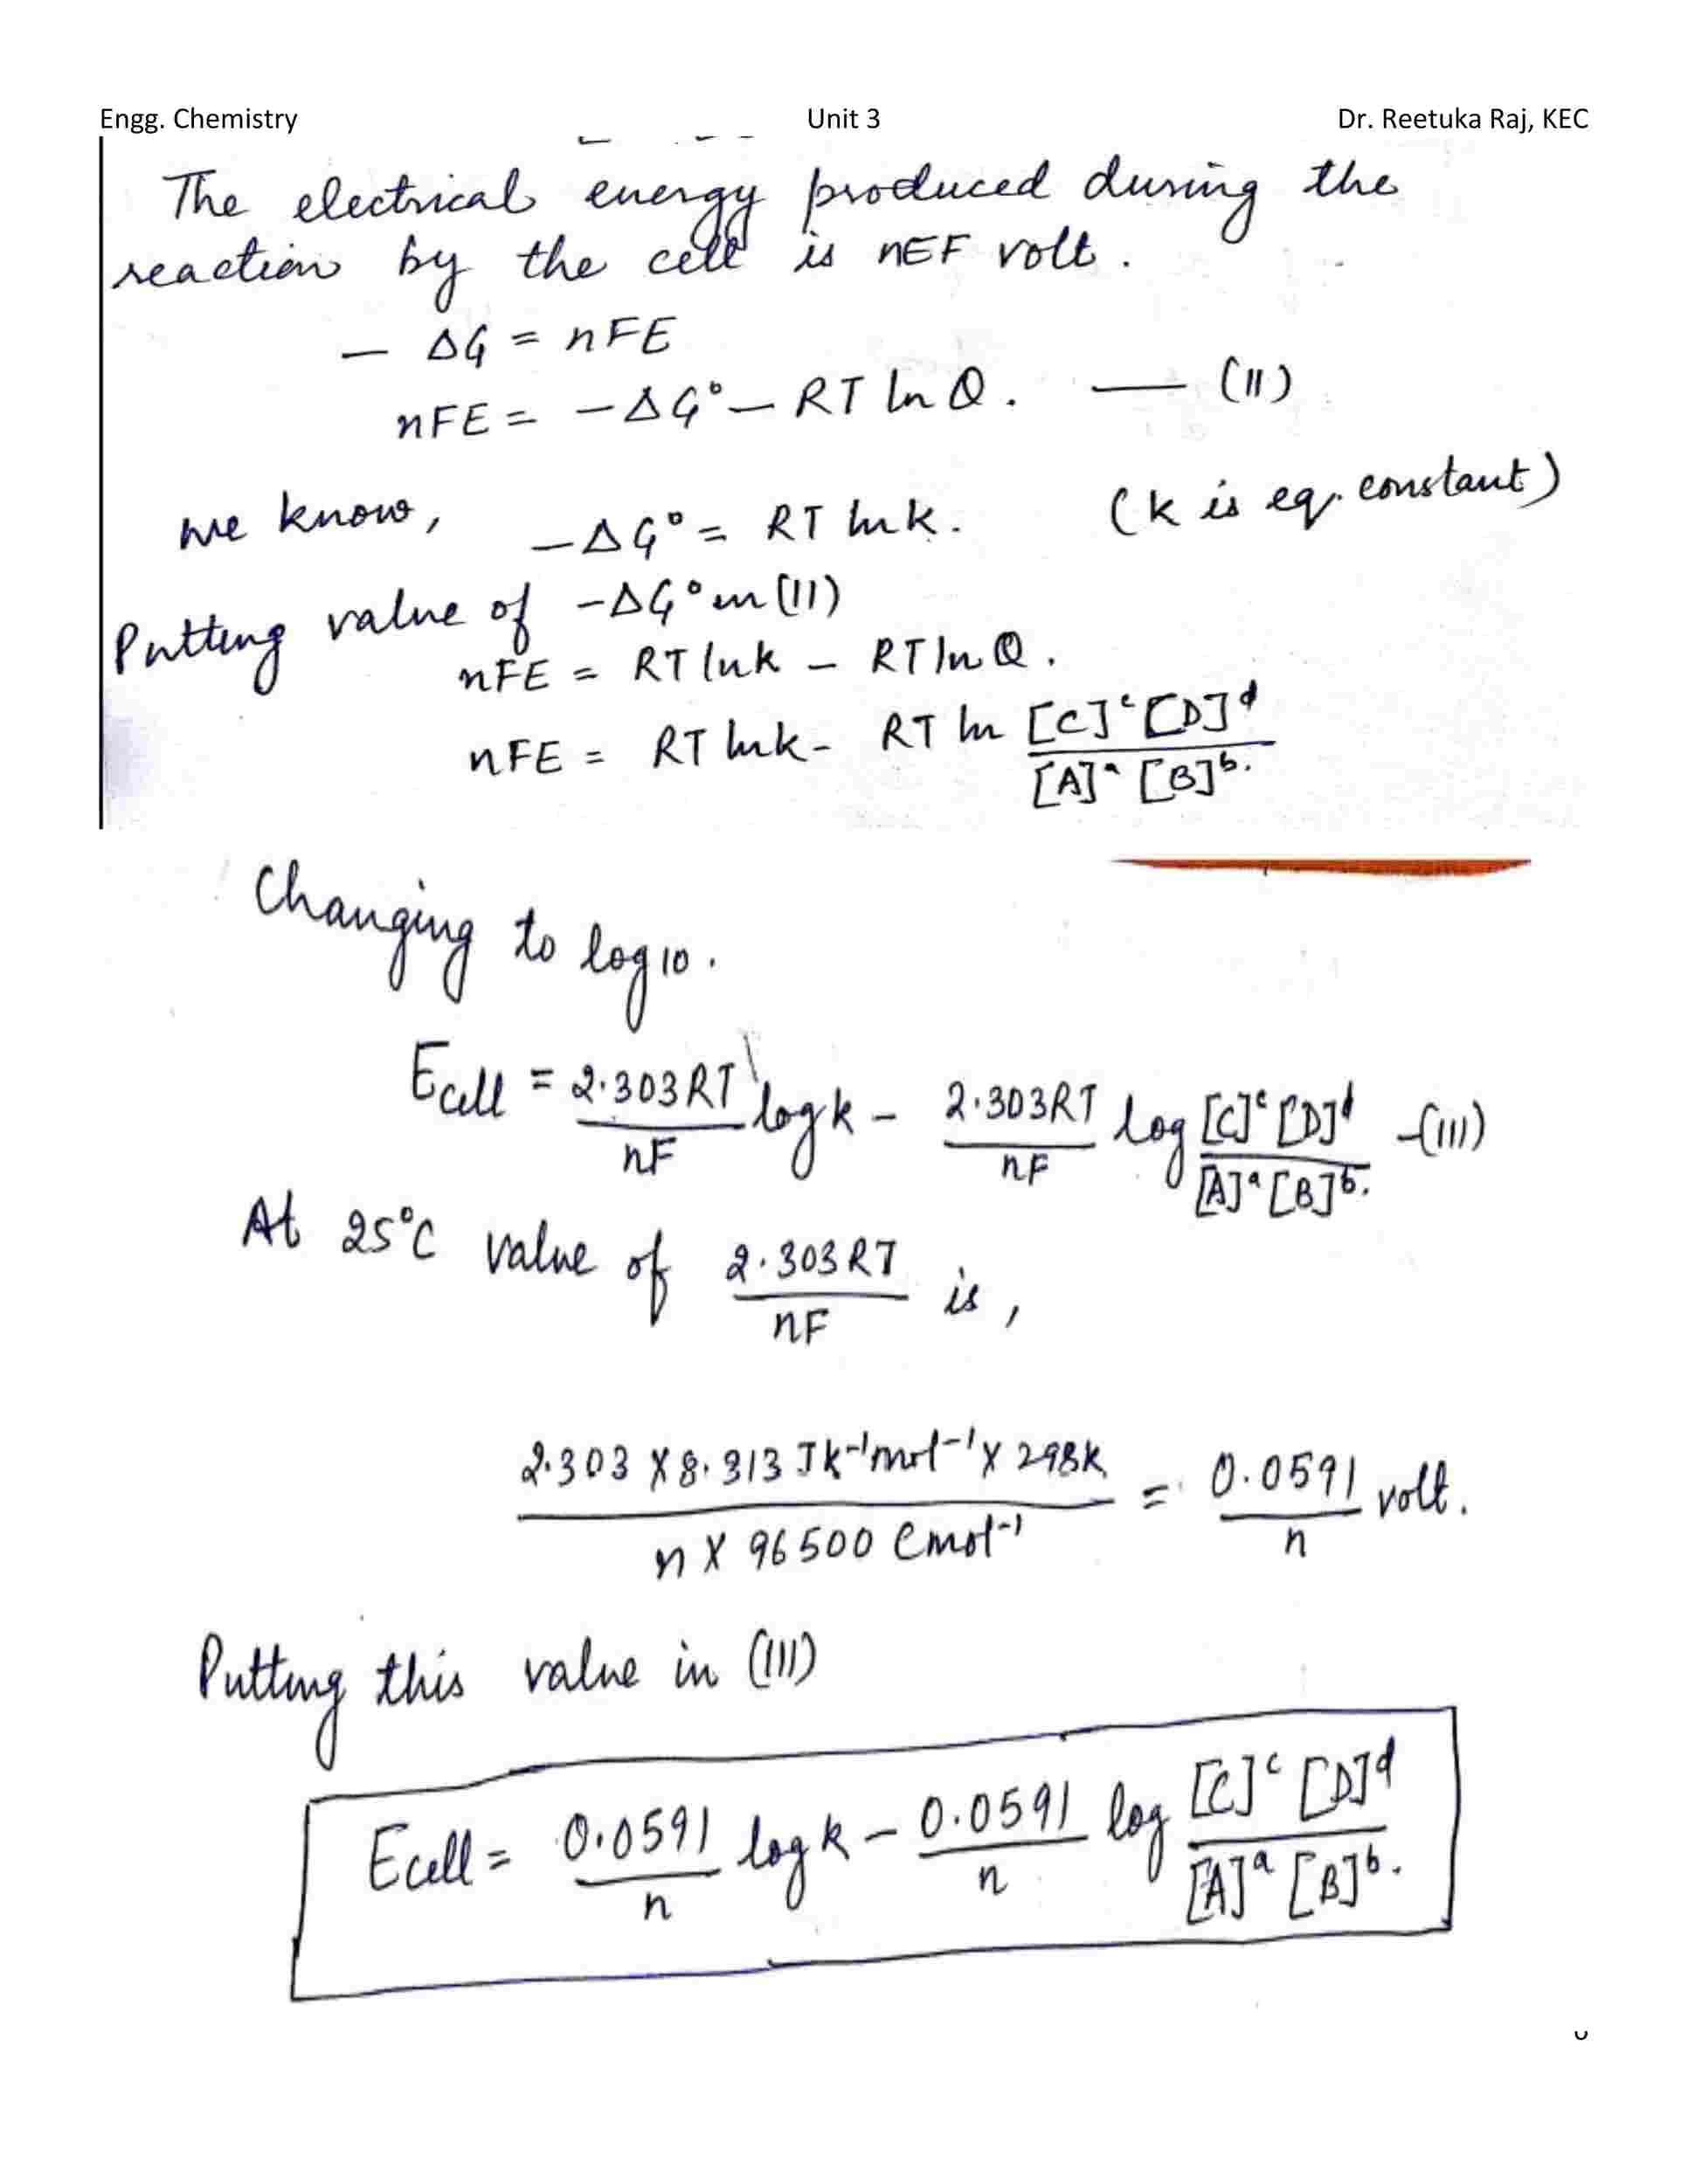 Engg. Chemistry Unit 3 Dr. Reetuka Raj, KEC
The electrical energy produced during the
reaction by the cell is nEF volt.
− ΔG = nFE
nFE = −ΔG° − RT ln Q. — (II)
we know, −ΔG° = RT lnk. (k is eq. constant)
Putting value of −ΔG° in (II)
nFE = RT lnk − RT ln Q.
nFE = RT lnk − RT ln [C]ᶜ [D]ᵈ / [A]ᵃ [B]ᵇ.
Changing to log10.
Ecell = 2.303RT / nF log k − 2.303RT / nF log [C]ᶜ [D]ᵈ / [A]ᵃ [B]ᵇ. −(III)
At 25°C value of 2.303RT / nF is,
2.303 X 8.313 Jk⁻¹mol⁻¹ X 298k / n X 96500 Cmol⁻¹ = 0.0591 / n volt.
Putting this value in (III)
Ecell = 0.0591 / n log k − 0.0591 / n log [C]ᶜ [D]ᵈ / [A]ᵃ [B]ᵇ.